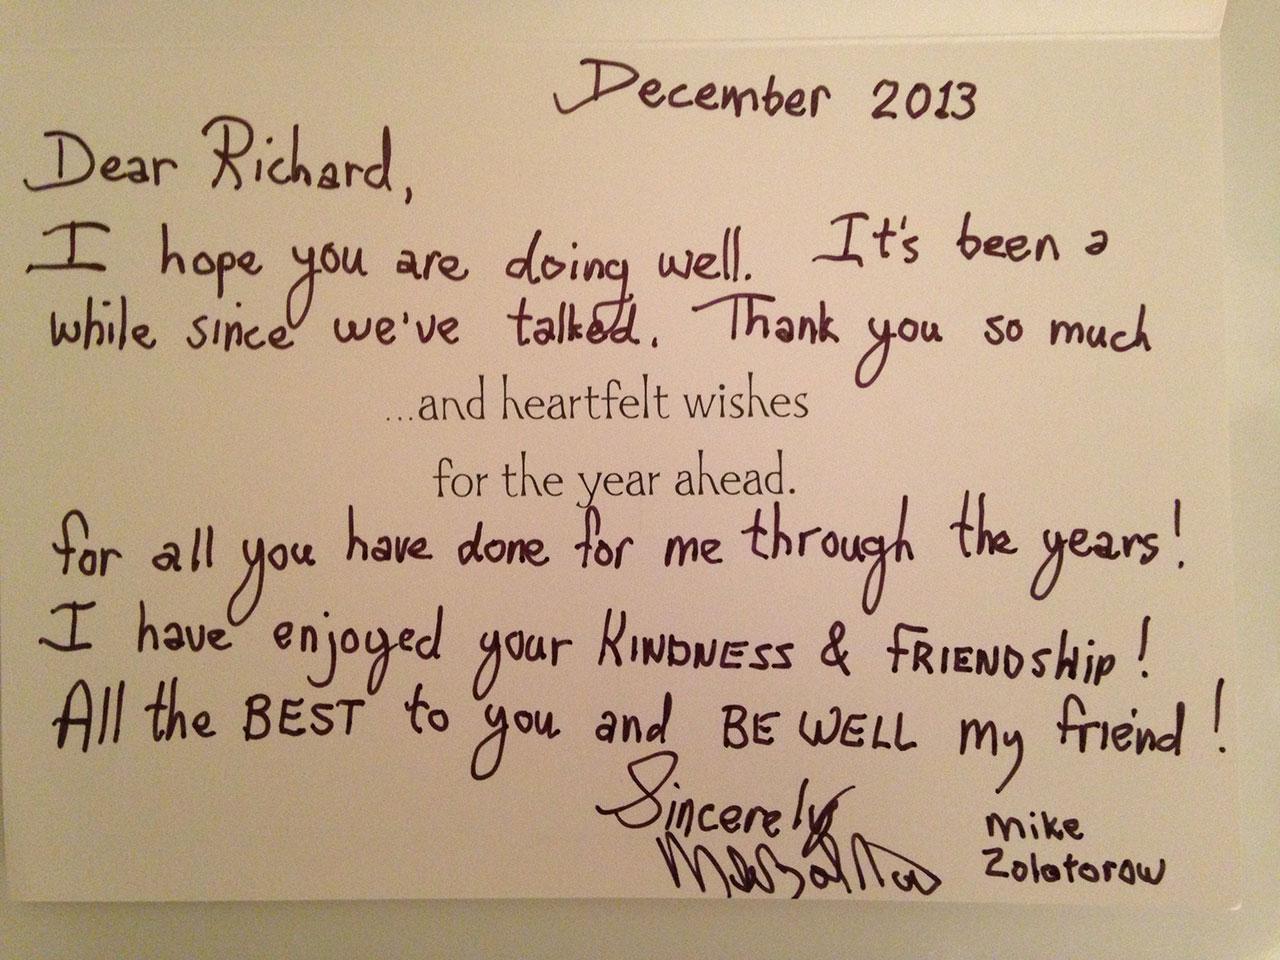 December 2013
Dear Richard,
I hope you are doing well. It's been a
while since we've talked. Thank you so much
...and heartfelt wishes
for the year ahead.
for all you have done for me through the years!
I have enjoyed your KINDNESS & FRIENDSHIP!
All the BEST to you and BE WELL my friend!
Sincerely
Mike
Zolotorow